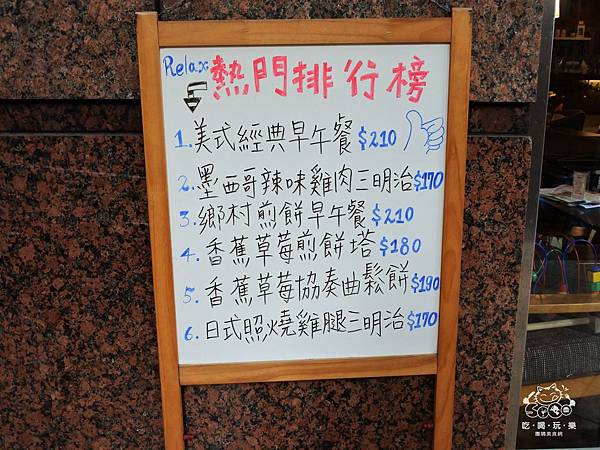 Relax 熱門排行榜
1.美式經典早午餐$210
2.墨西哥辣味雞肉三明治$170
3.鄉村煎餅早午餐$210
4.香蕉草莓煎餅塔$180
5.香蕉草莓協奏曲鬆餅$190
6.日式照燒雞腿三明治$170
吃・喝・玩・樂